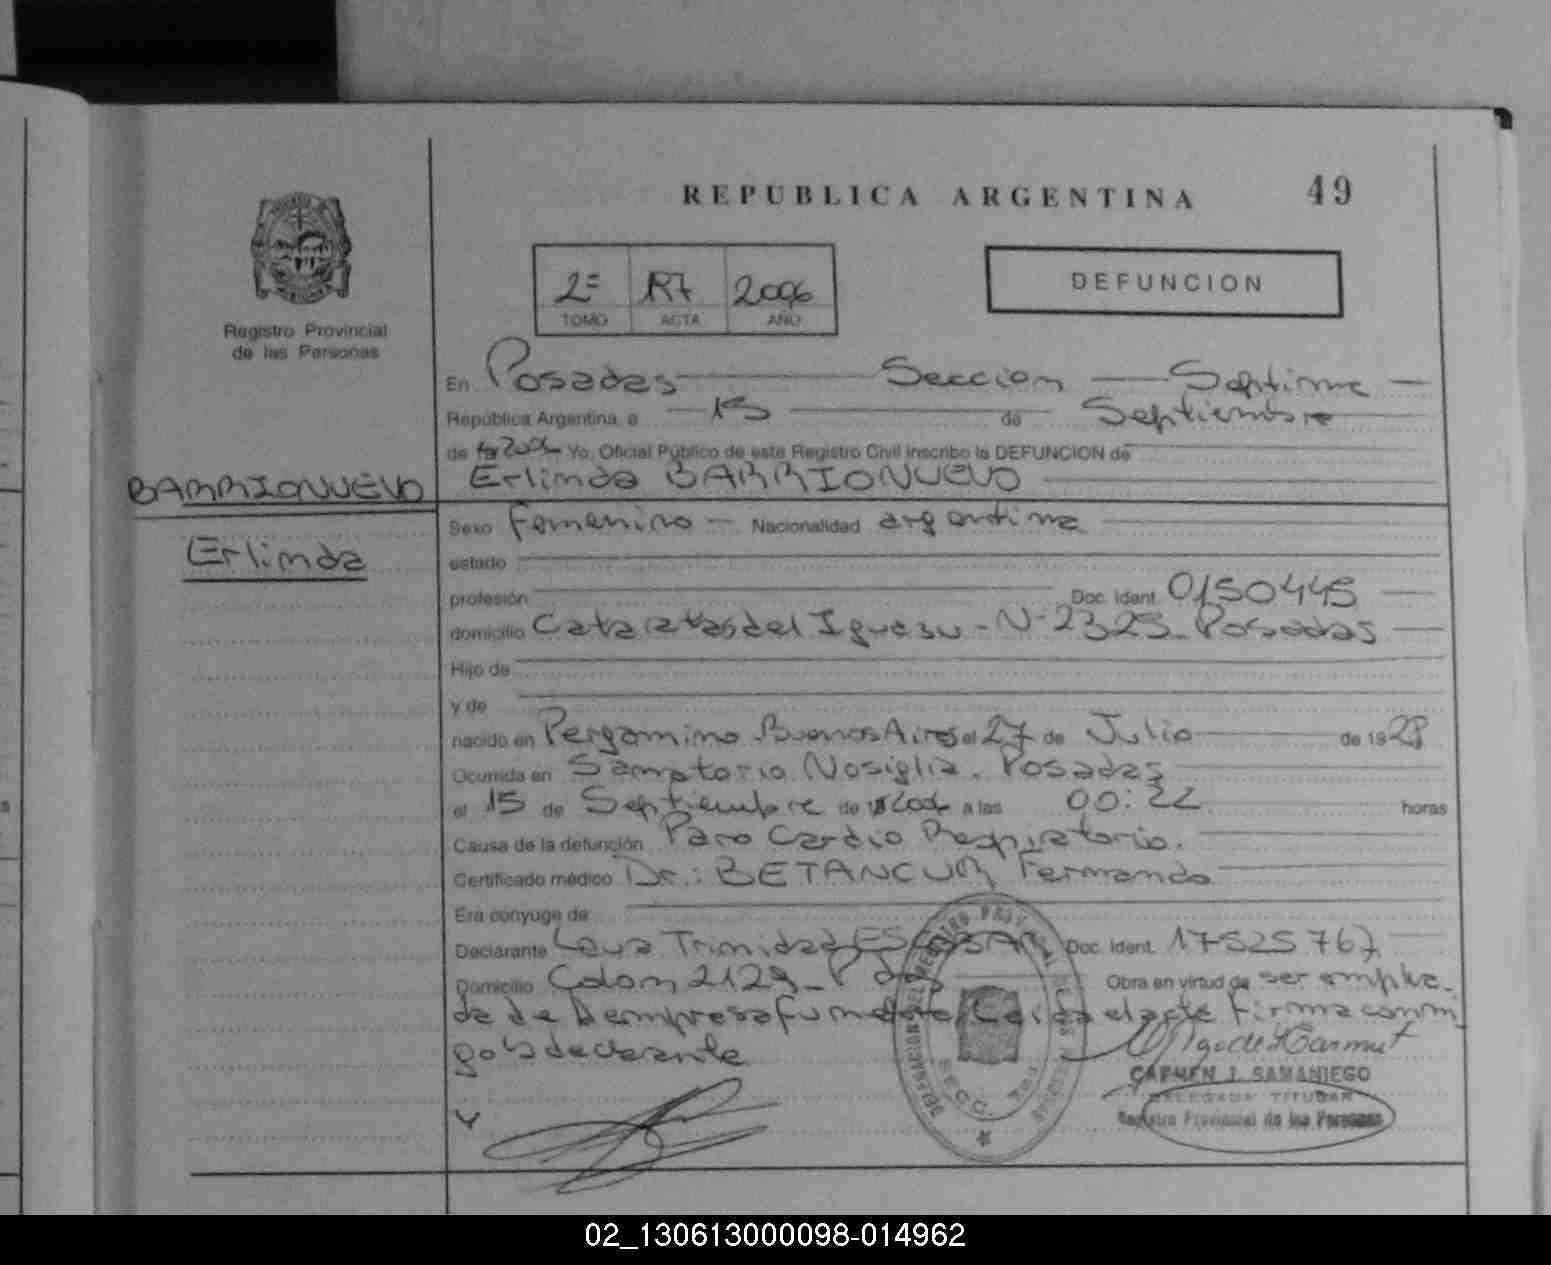 REPUBLICA ARGENTINA 49
Registro Provincial
de las Personas
2º 2006
TOMO ACTA AÑO
DEFUNCION
En Posadas Seccion Septima
República Argentina a 15 de Septiembre
de 2006 Yo, Oficial Público de este Registro Civil inscribo la DEFUNCION de
BARRIONUEVO
Erlinda
Erlinda BARRIONUEVO
Sexo Femenino - Nacionalidad argentina
estado
profesión Doc. Ident. 0150445
domicilio Cataratas del Iguasu - Nº 2325 - Posadas
Hijo de
y de
nacido en Pergamino Buenos Aires el 27 de Julio de 19 28
Ocurrida en Sanatorio Nosiglia. Posadas
el 15 de Septiembre de 2006 a las 00:22 horas
Causa de la defunción Paro Cardio Respiratorio.
Certificado médico Dr.: BETANCUR Fernando
Era cónyuge de
Declarante Trinidad Doc. Ident. 17525767
Domicilio Colon 2129 - Obra en virtud de ser emplea-
da de la empresa el acta firma conmi
go la declarante
CARMEN I. SAMANIEGO
DELEGADA TITULAR
Registro Provincial de las Personas
SECC. 7ma.
02_130613000098-014962